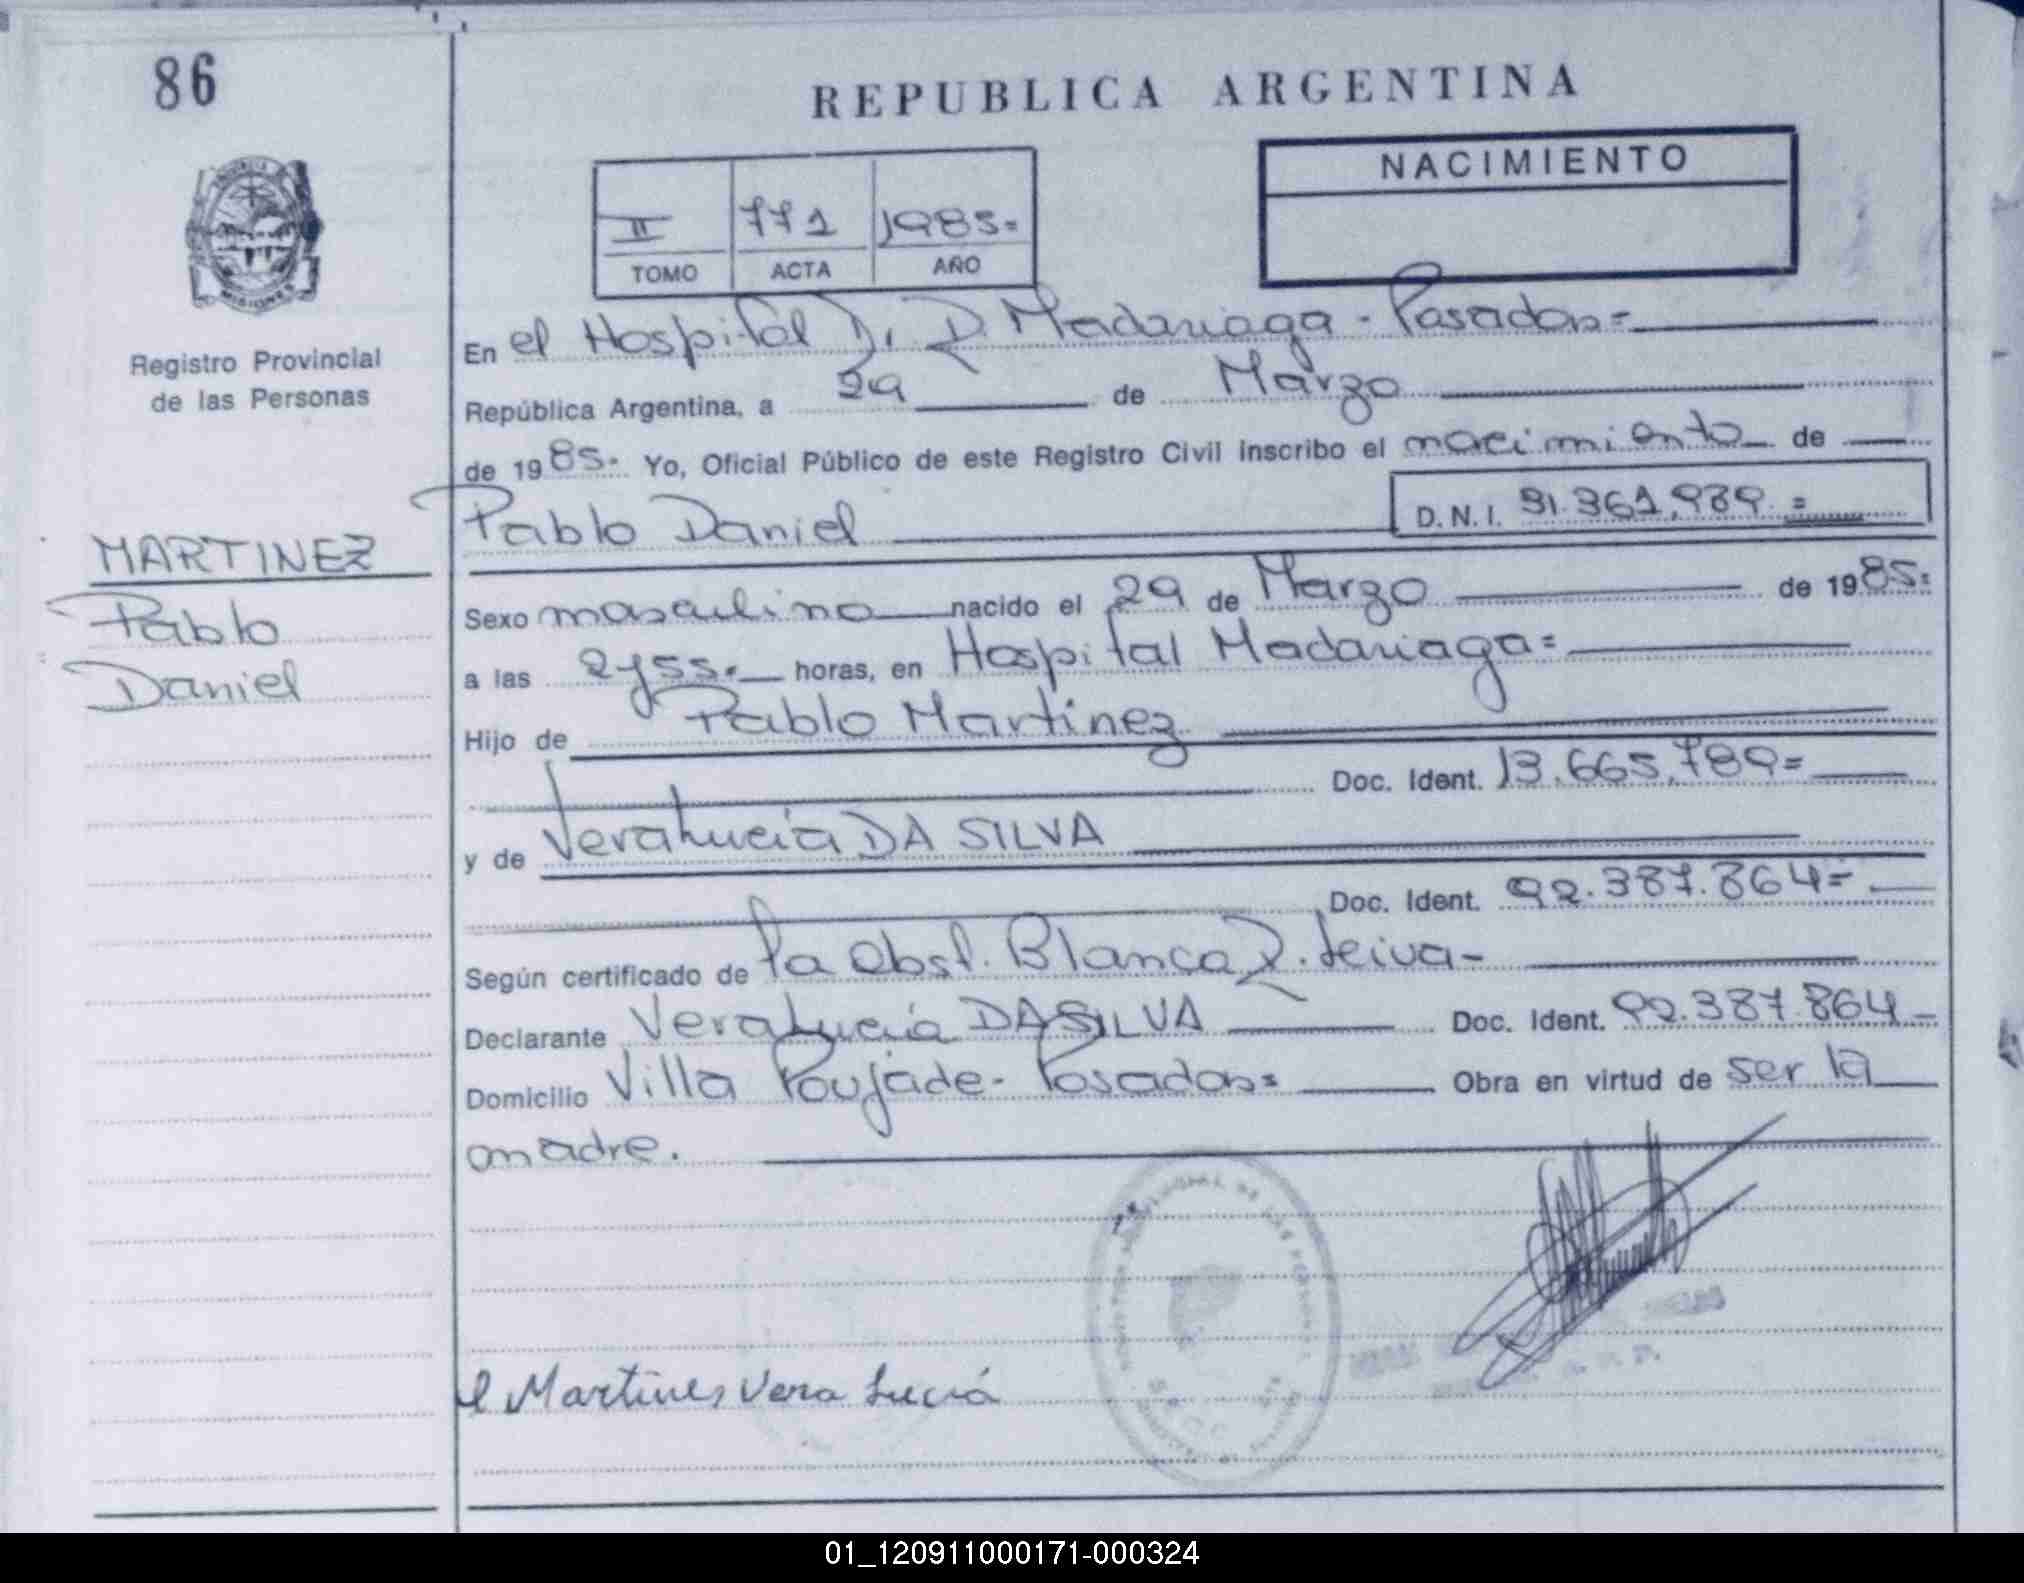 86
REPUBLICA ARGENTINA
NACIMIENTO
II 771 1985=
TOMO ACTA AÑO
MISIONES
Registro Provincial
de las Personas
MARTINEZ
Pablo
Daniel
En el Hospital D. R. Madariaga - Posadas=
República Argentina, a 29 de Marzo
de 1985- Yo, Oficial Público de este Registro Civil inscribo el nacimiento de
Pablo Daniel D.N.I. 31.361.989.=
Sexo masculino nacido el 29 de Marzo de 1985=
a las 2y55.- horas, en Hospital Madariaga=
Hijo de Pablo Martinez
Doc. Ident. 13.665.789=
y de Vera Lucia DA SILVA
Doc. Ident. 92.387.864=
Según certificado de la Obst. Blanca R. Leiva-
Declarante Vera Lucia DA SILVA Doc. Ident. 92.387.864
Domicilio Villa Poujade- Posadas= Obra en virtud de ser la
madre.
Martines Vera Lucia
01_120911000171-000324